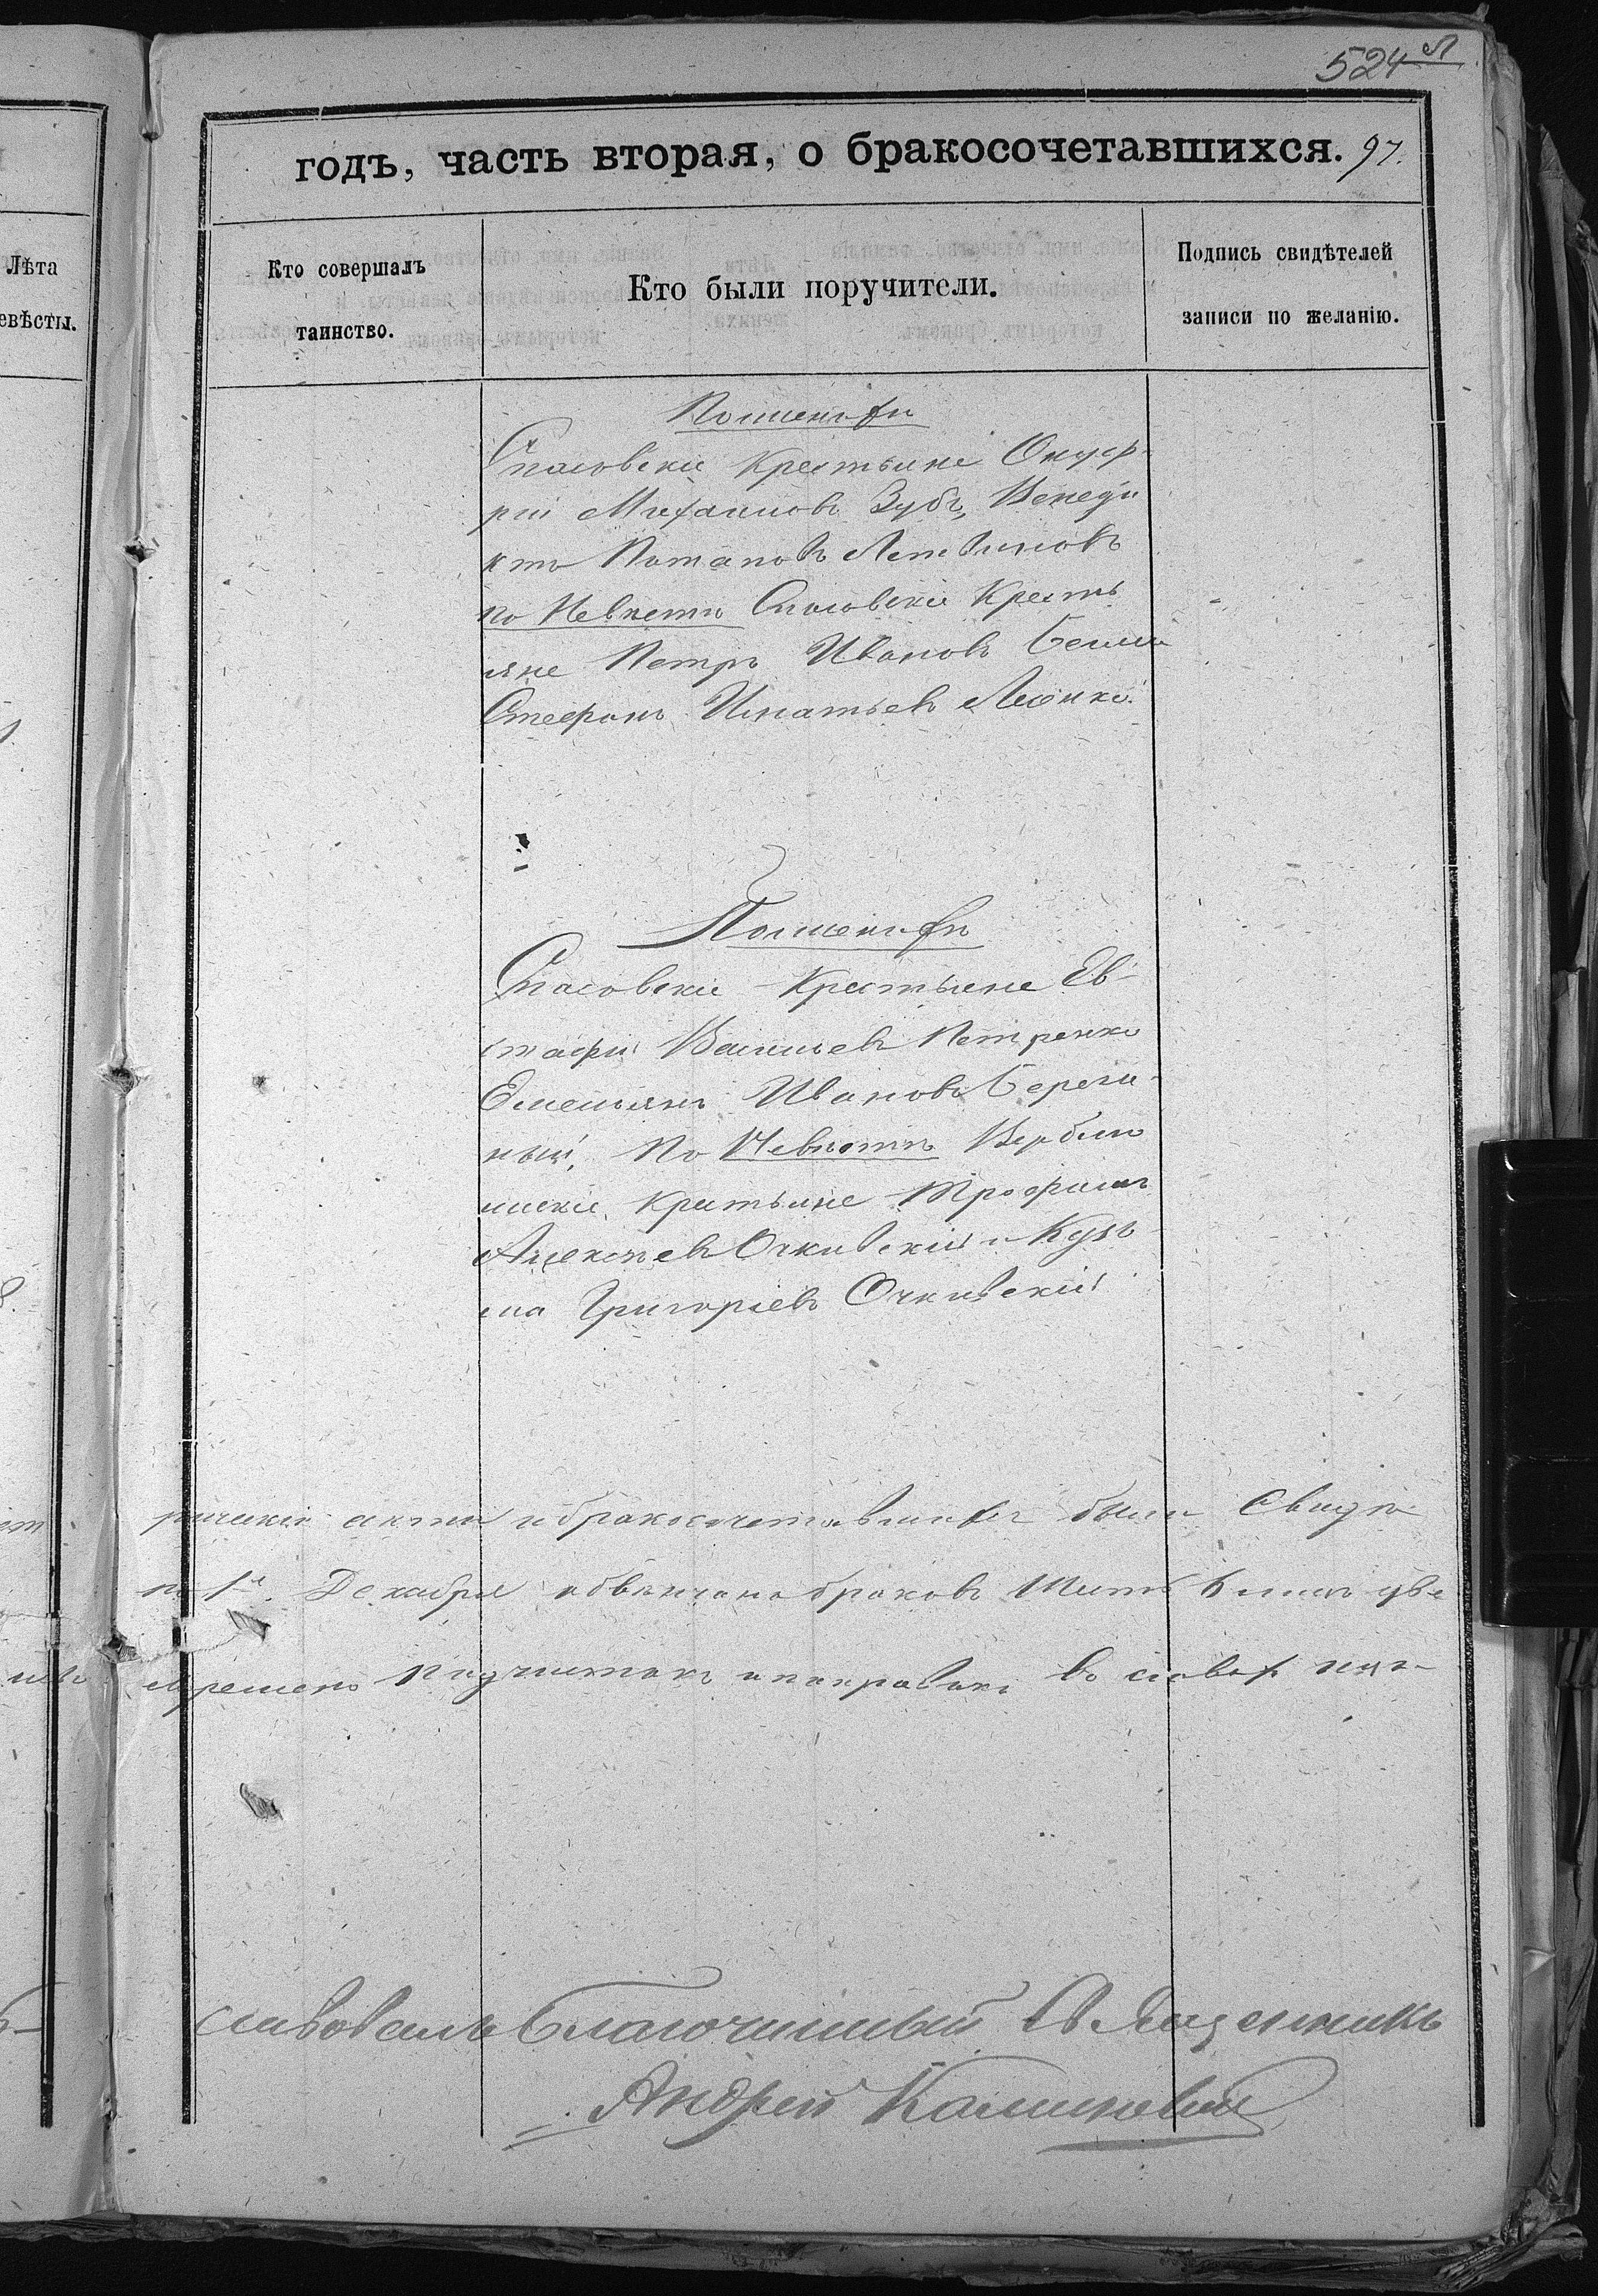 524
годъ, часть вторая, о бракосочетавшихся. 97.
Лѣта
евѣсты.
Кто совершалъ
таинство.
Кто были поручители.
Подпись свидѣтелей
записи по желанію.
По женихѣ
Спасовскіе крестьяне Онуф-
рій Михаиловъ Зубъ, Венеди
ктъ Потаповъ Литвиновъ
по Невѣстѣ Спасовскіе кресть
яне Петръ Ивановъ
Стефанъ Игнатьевъ
По женихѣ
Спасовскіе крестьяне Ев-
стафій Васильевъ Петренко
Емельянъ Ивановъ Берези-
ный, По Невѣстѣ Вербил
крестьяне Трофимъ
Алексѣевъ Очкивскій и Кузь
ма Григоріевъ Очкивскій
акты о бракосочетавшихся были свидѣ
по 1е Декабря обвѣнчано браковъ
подчистокъ и поправокъ въ словахъ
Благочинный Священникъ
Андрей